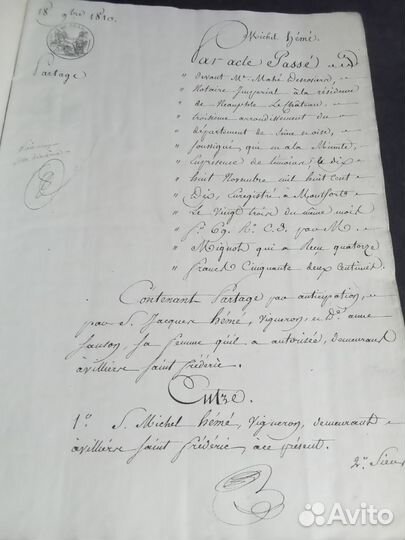 18 9bre 1810.
Michel hémé.
Partage
Par acte Passé
" devant Me
" Notaire Impérial à la résidence
" de Neauphle Le Château,
" troisième arrondissement du
" département de Seine et oise,
" Soussigné, qui en a la Minute,
" En présence de témoins, le dix
" huit Novembre mil huit cent
" Dix, Enregistré à Montfort
" Le Vingt trois du même mois
" f. 69. Ro. C. 3. par M.
" Mignot qui a Reçu quatorze
" francs Cinquante deux Centimes.
Contenant Partage par anticipation,
par S. Jacques hémé, Vigneron, et De. anne
sa femme qu'il a autorisée, demeurant
à villiers Saint frédéric.
Entre.
1o. S. Michel hémé, Vigneron, demeurant
à villiers Saint frédéric, à ce présent.
2o. Sieur
Avito